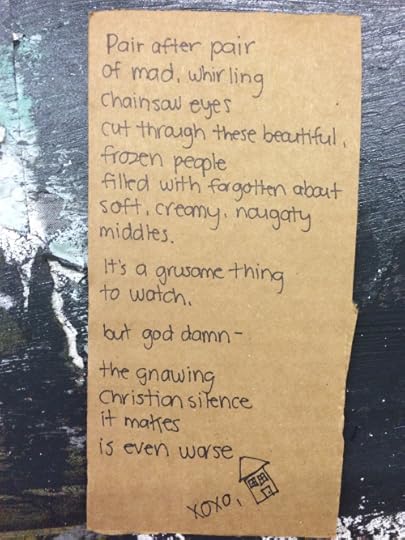 Pair after pair
of mad, whirling
chainsaw eyes
cut through these beautiful,
frozen people
filled with forgotten about
soft, creamy, nougaty
middles.
It's a grusome thing
to watch,
but god damn-
the gnawing
Christian silence
it makes
is even worse
xoxo,